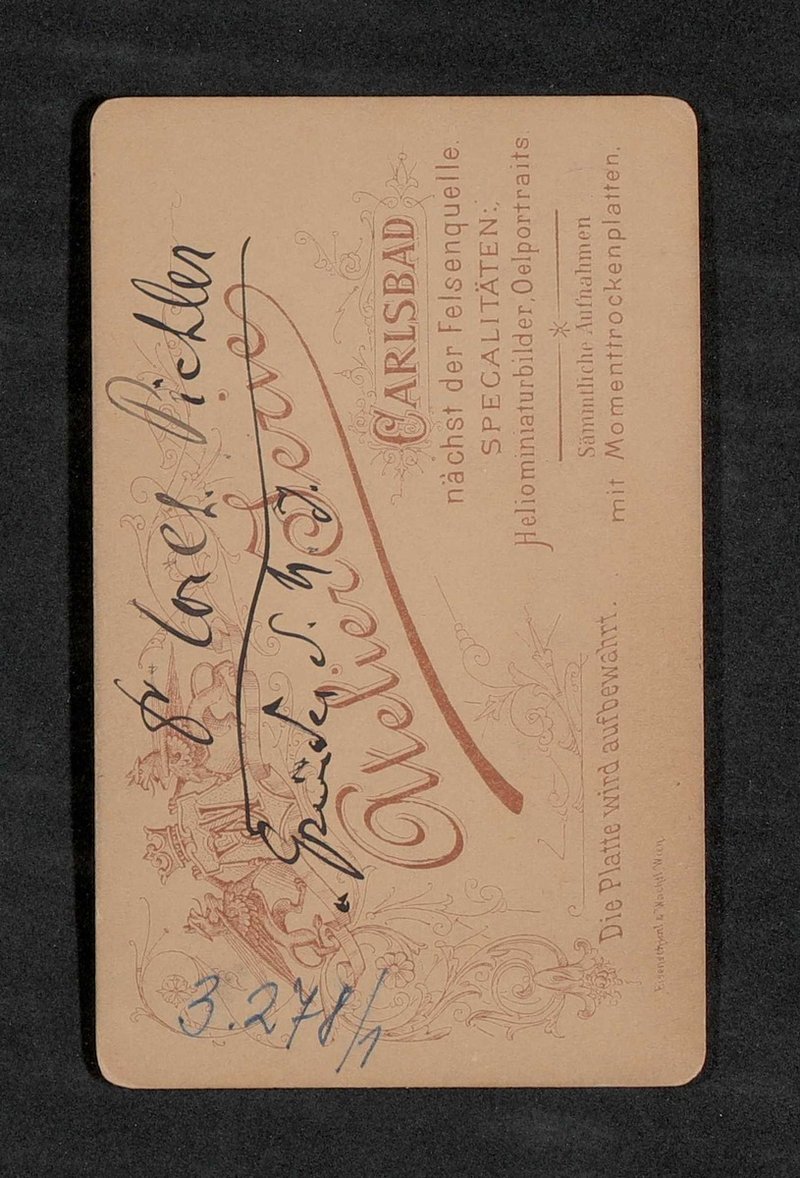 Pichler
Atelier
CARLSBAD
nächst der Felsenquelle.
SPECALITÄTEN:
Heliominiaturbilder, Oelportraits
Sämmtliche Aufnahmen
mit Momenttrockenplatten.
Die Platte wird aufbewahrt.
Eisenschiml & Wachtl Wien
3.278/1